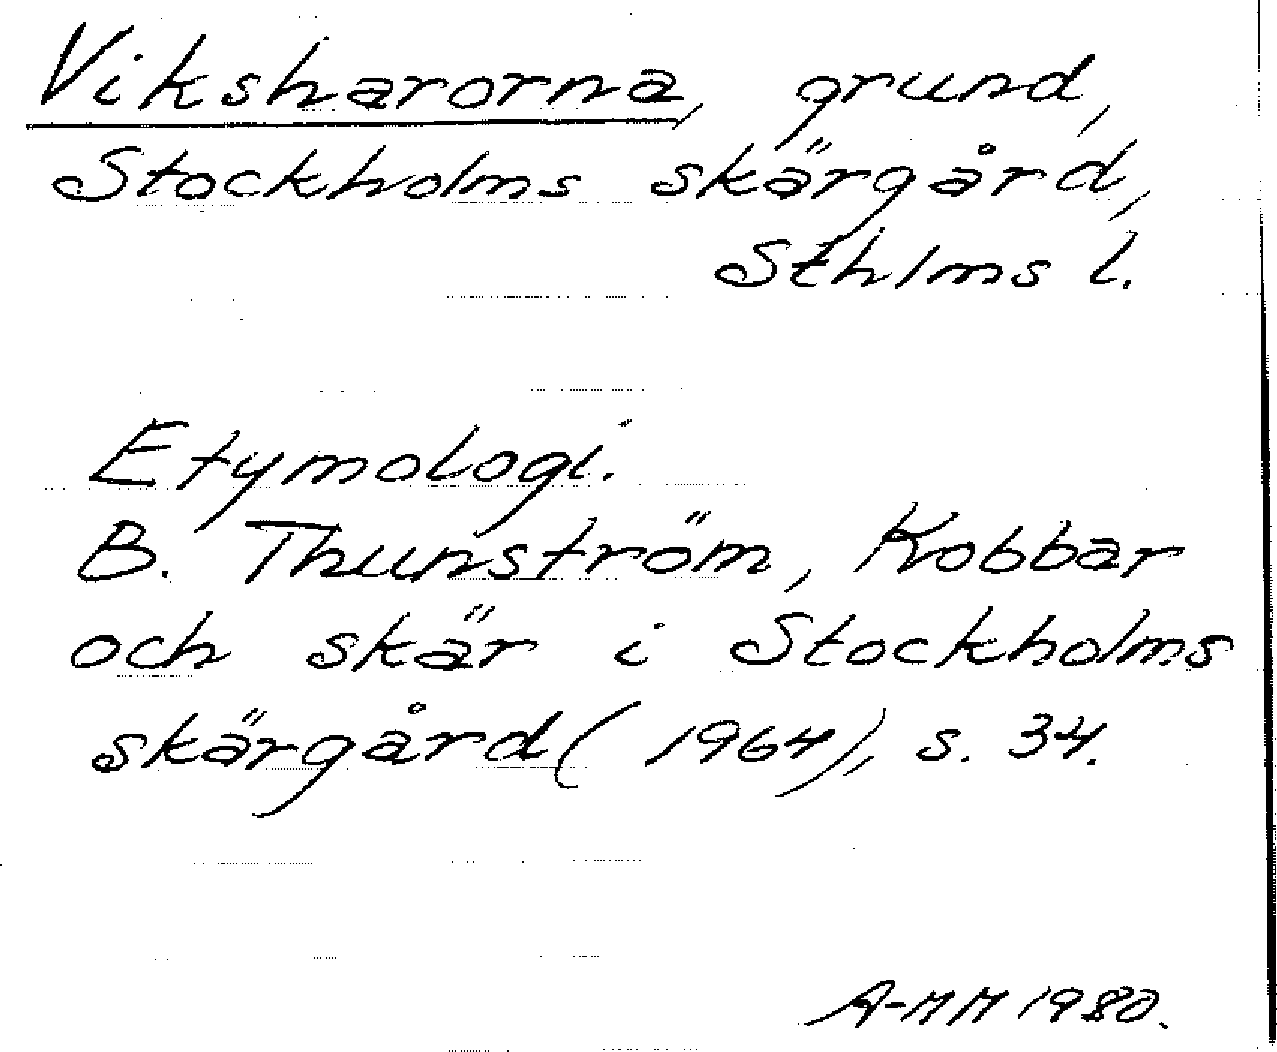 Viksharorna, grund,
Stockholms skärgård,
Sthlms l.
Etymologi.
B. Thunström, Kobbar
och skär i Stockholms
skärgård (1964), s. 34.
A-MM 1980.